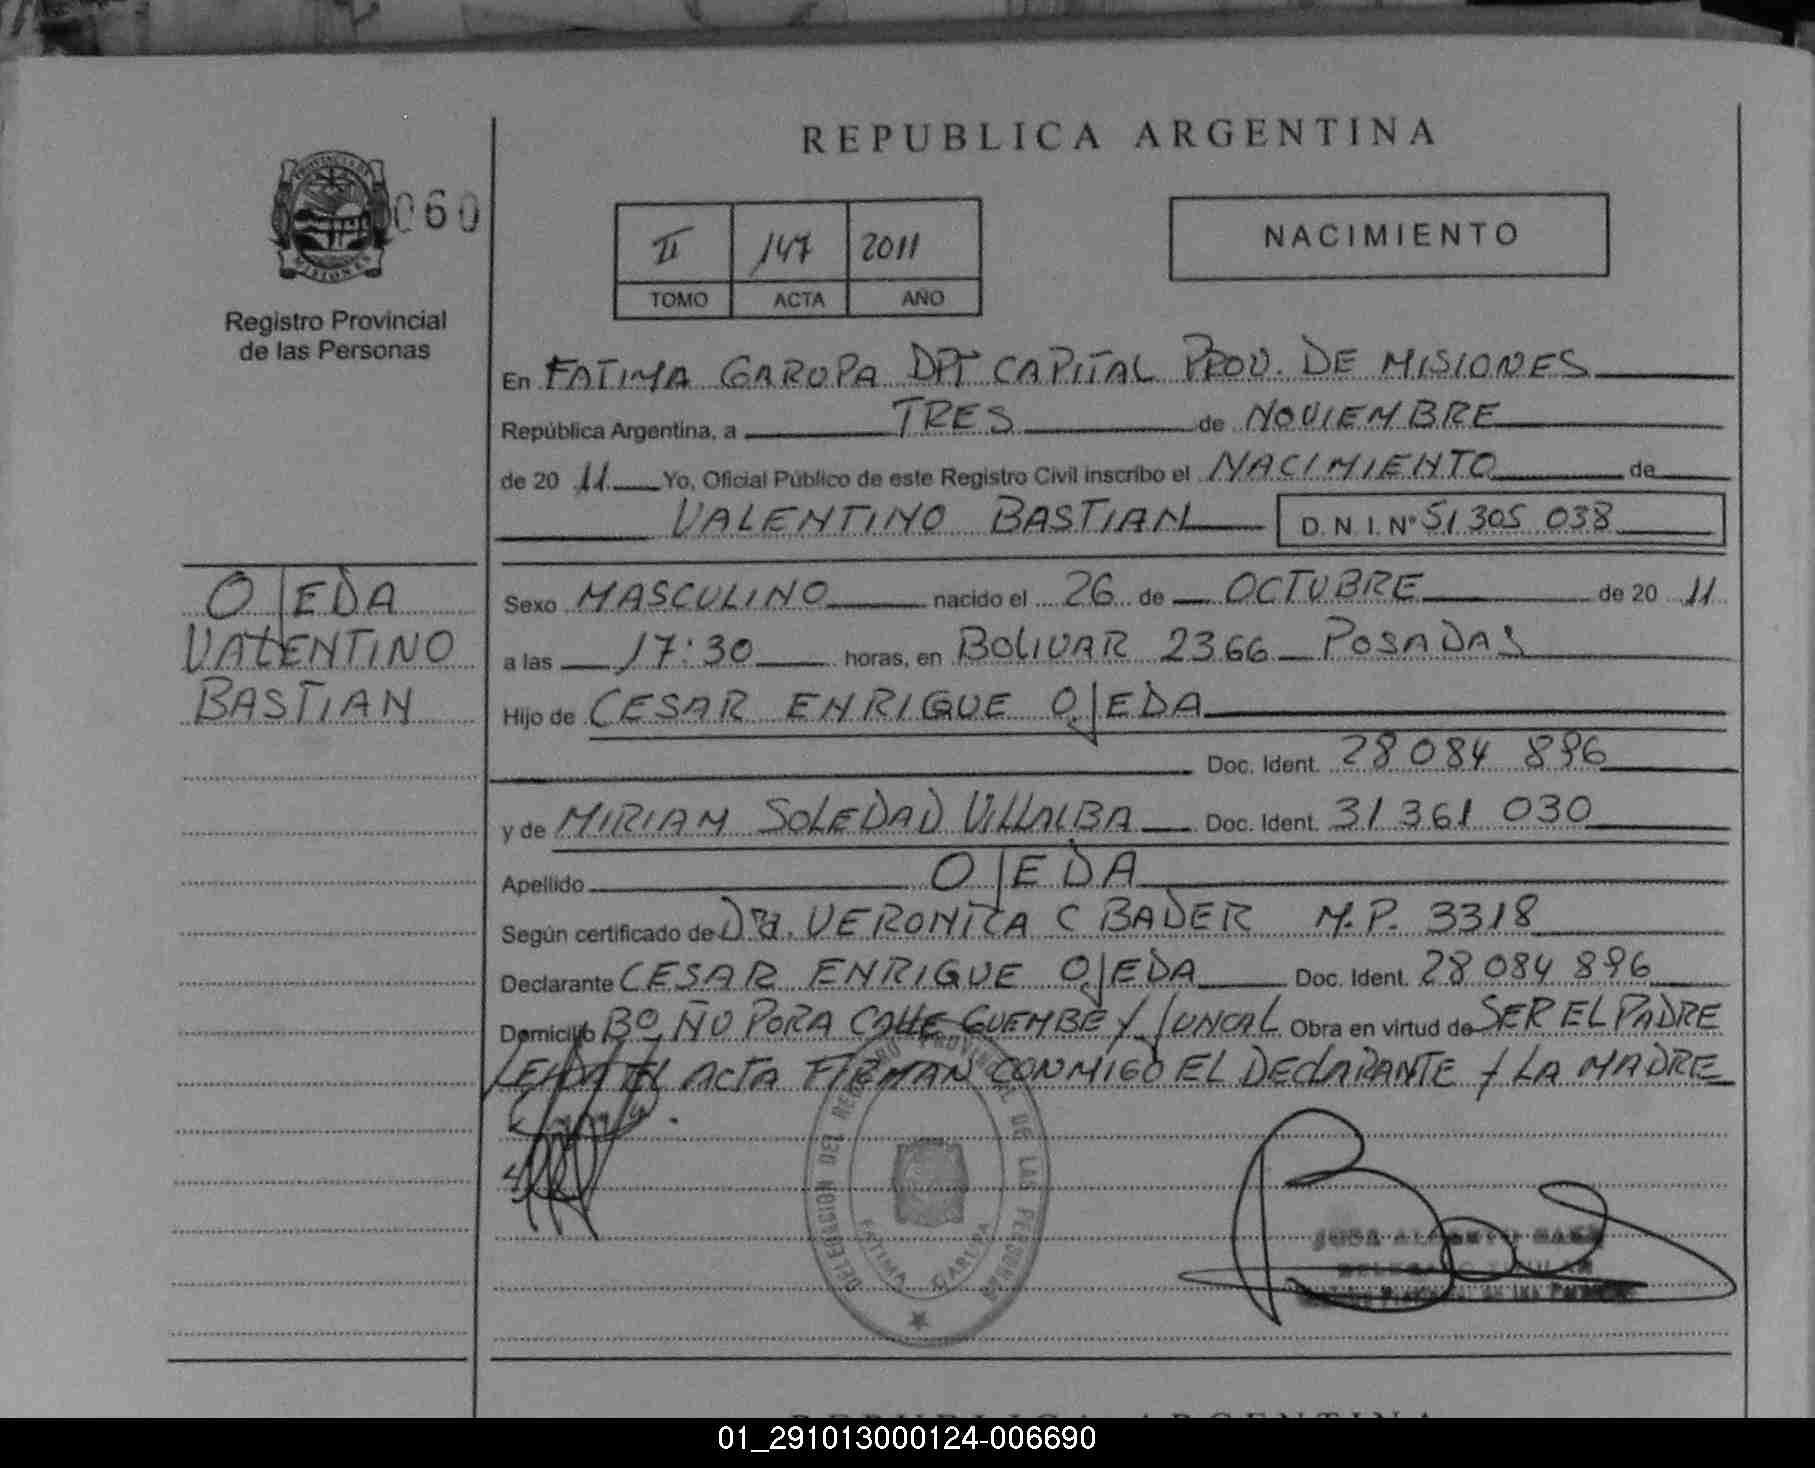 REPUBLICA ARGENTINA
PROVINCIA DE
MISIONES
060
Registro Provincial
de las Personas
II 147 2011
TOMO ACTA AÑO
NACIMIENTO
En FATIMA GARUPA DPT CAPITAL PROV. DE MISIONES
República Argentina, a TRES de NOVIEMBRE
de 20 11 Yo, Oficial Público de este Registro Civil inscribo el NACIMIENTO de
VALENTINO BASTIAN D.N.I. Nº 51 305 038
OJEDA
VALENTINO
BASTIAN
Sexo MASCULINO nacido el 26 de OCTUBRE de 20 11
a las 17:30 horas, en BOLIVAR 2366 POSADAS
Hijo de CESAR ENRIQUE OJEDA
Doc. Ident. 28 084 896
y de MIRIAM SOLEDAD VILLALBA Doc. Ident. 31 361 030
Apellido OJEDA
Según certificado de DRA. VERONICA C BADER M.P. 3318
Declarante CESAR ENRIQUE OJEDA Doc. Ident. 28 084 896
Domicilio Bº ÑU PORA CALLE GUEMBE Y JUNCAL Obra en virtud de SER EL PADRE
LEIDA EL ACTA FIRMAN CONMIGO EL DECLARANTE Y LA MADRE
DELEGACION DEL REGISTRO PROVINCIAL DE LAS PERSONAS
FATIMA GARUPA
REPUBLICA ARGENTINA
01_291013000124-006690